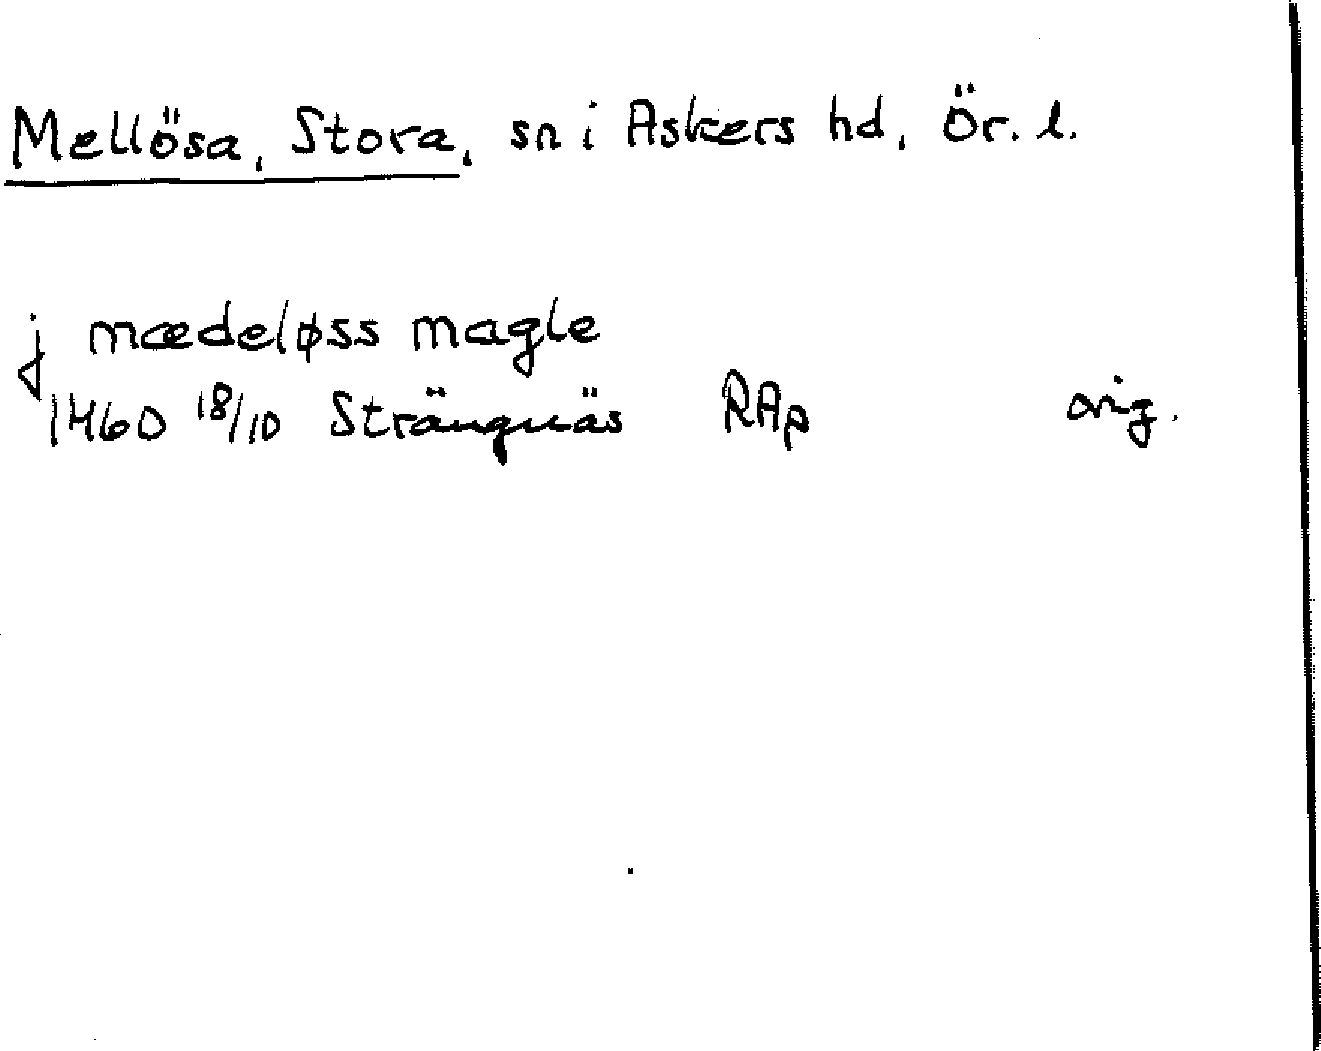 Mellösa, Stora, sn i Askers hd, Ör. l.
j mædeløss magle
1460 18/10 Strängnäs RAp orig.